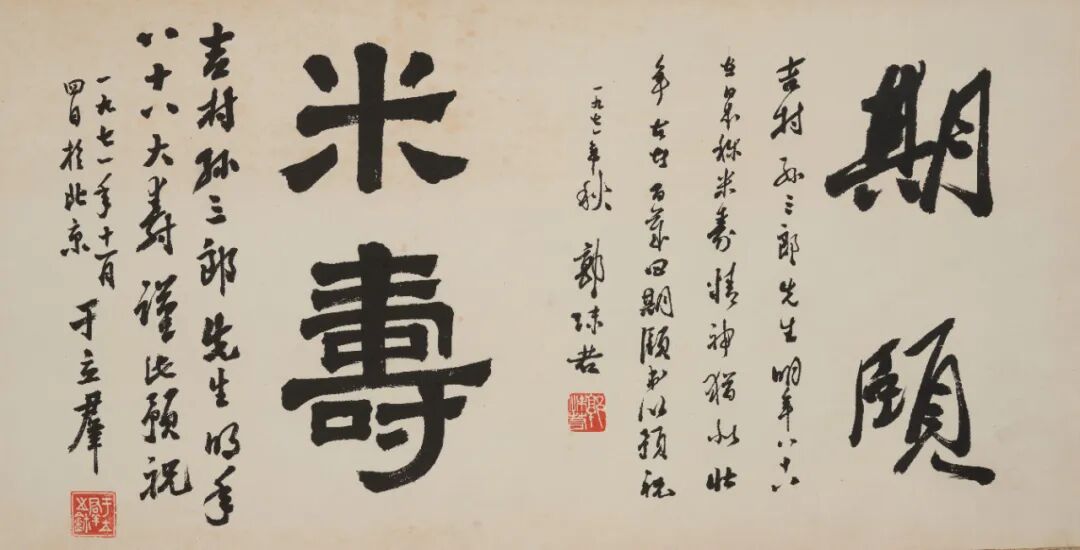 期頤
吉村孫三郎先生明年八十八
在日本称米寿精神犹如壮
年古百歲曰期頤书以預祝
一九七一年秋 郭沫若
郭沫若
米壽
吉村孫三郎先生明年
八十八大寿謹此預祝
一九七一年十一月
四日於北京
于立羣